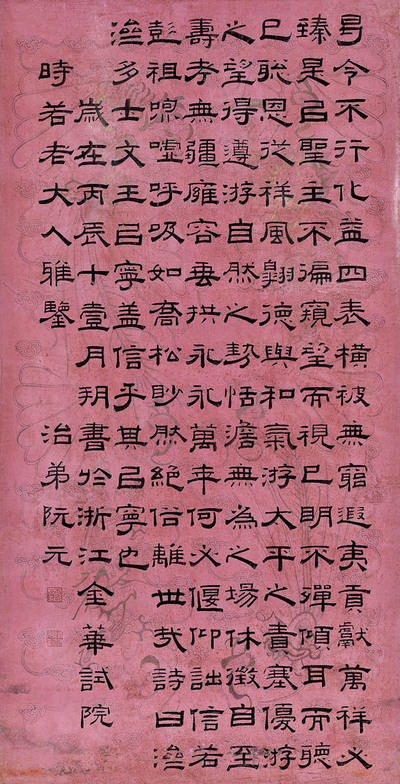 曷令不行化益四表橫被無窮遐夷貢獻萬祥必
臻是㠯聖主不徧窺望而視已明不殫傾耳而聽
已聡恩從祥風翱德與和氣游太平之責塞優游
之望得遵游自然之勢恬澹無為之場休徵自至
壽考無疆廱容垂拱永永萬年何必偃仰詘信若
彭祖呴噓呼吸如喬松眇然絕俗離世哉詩曰濟
濟多士文王㠯寧蓋信乎其㠯寧也
歲在丙辰十壹月朔書於浙江金華試院
時若老大人雅鑒 治弟阮元